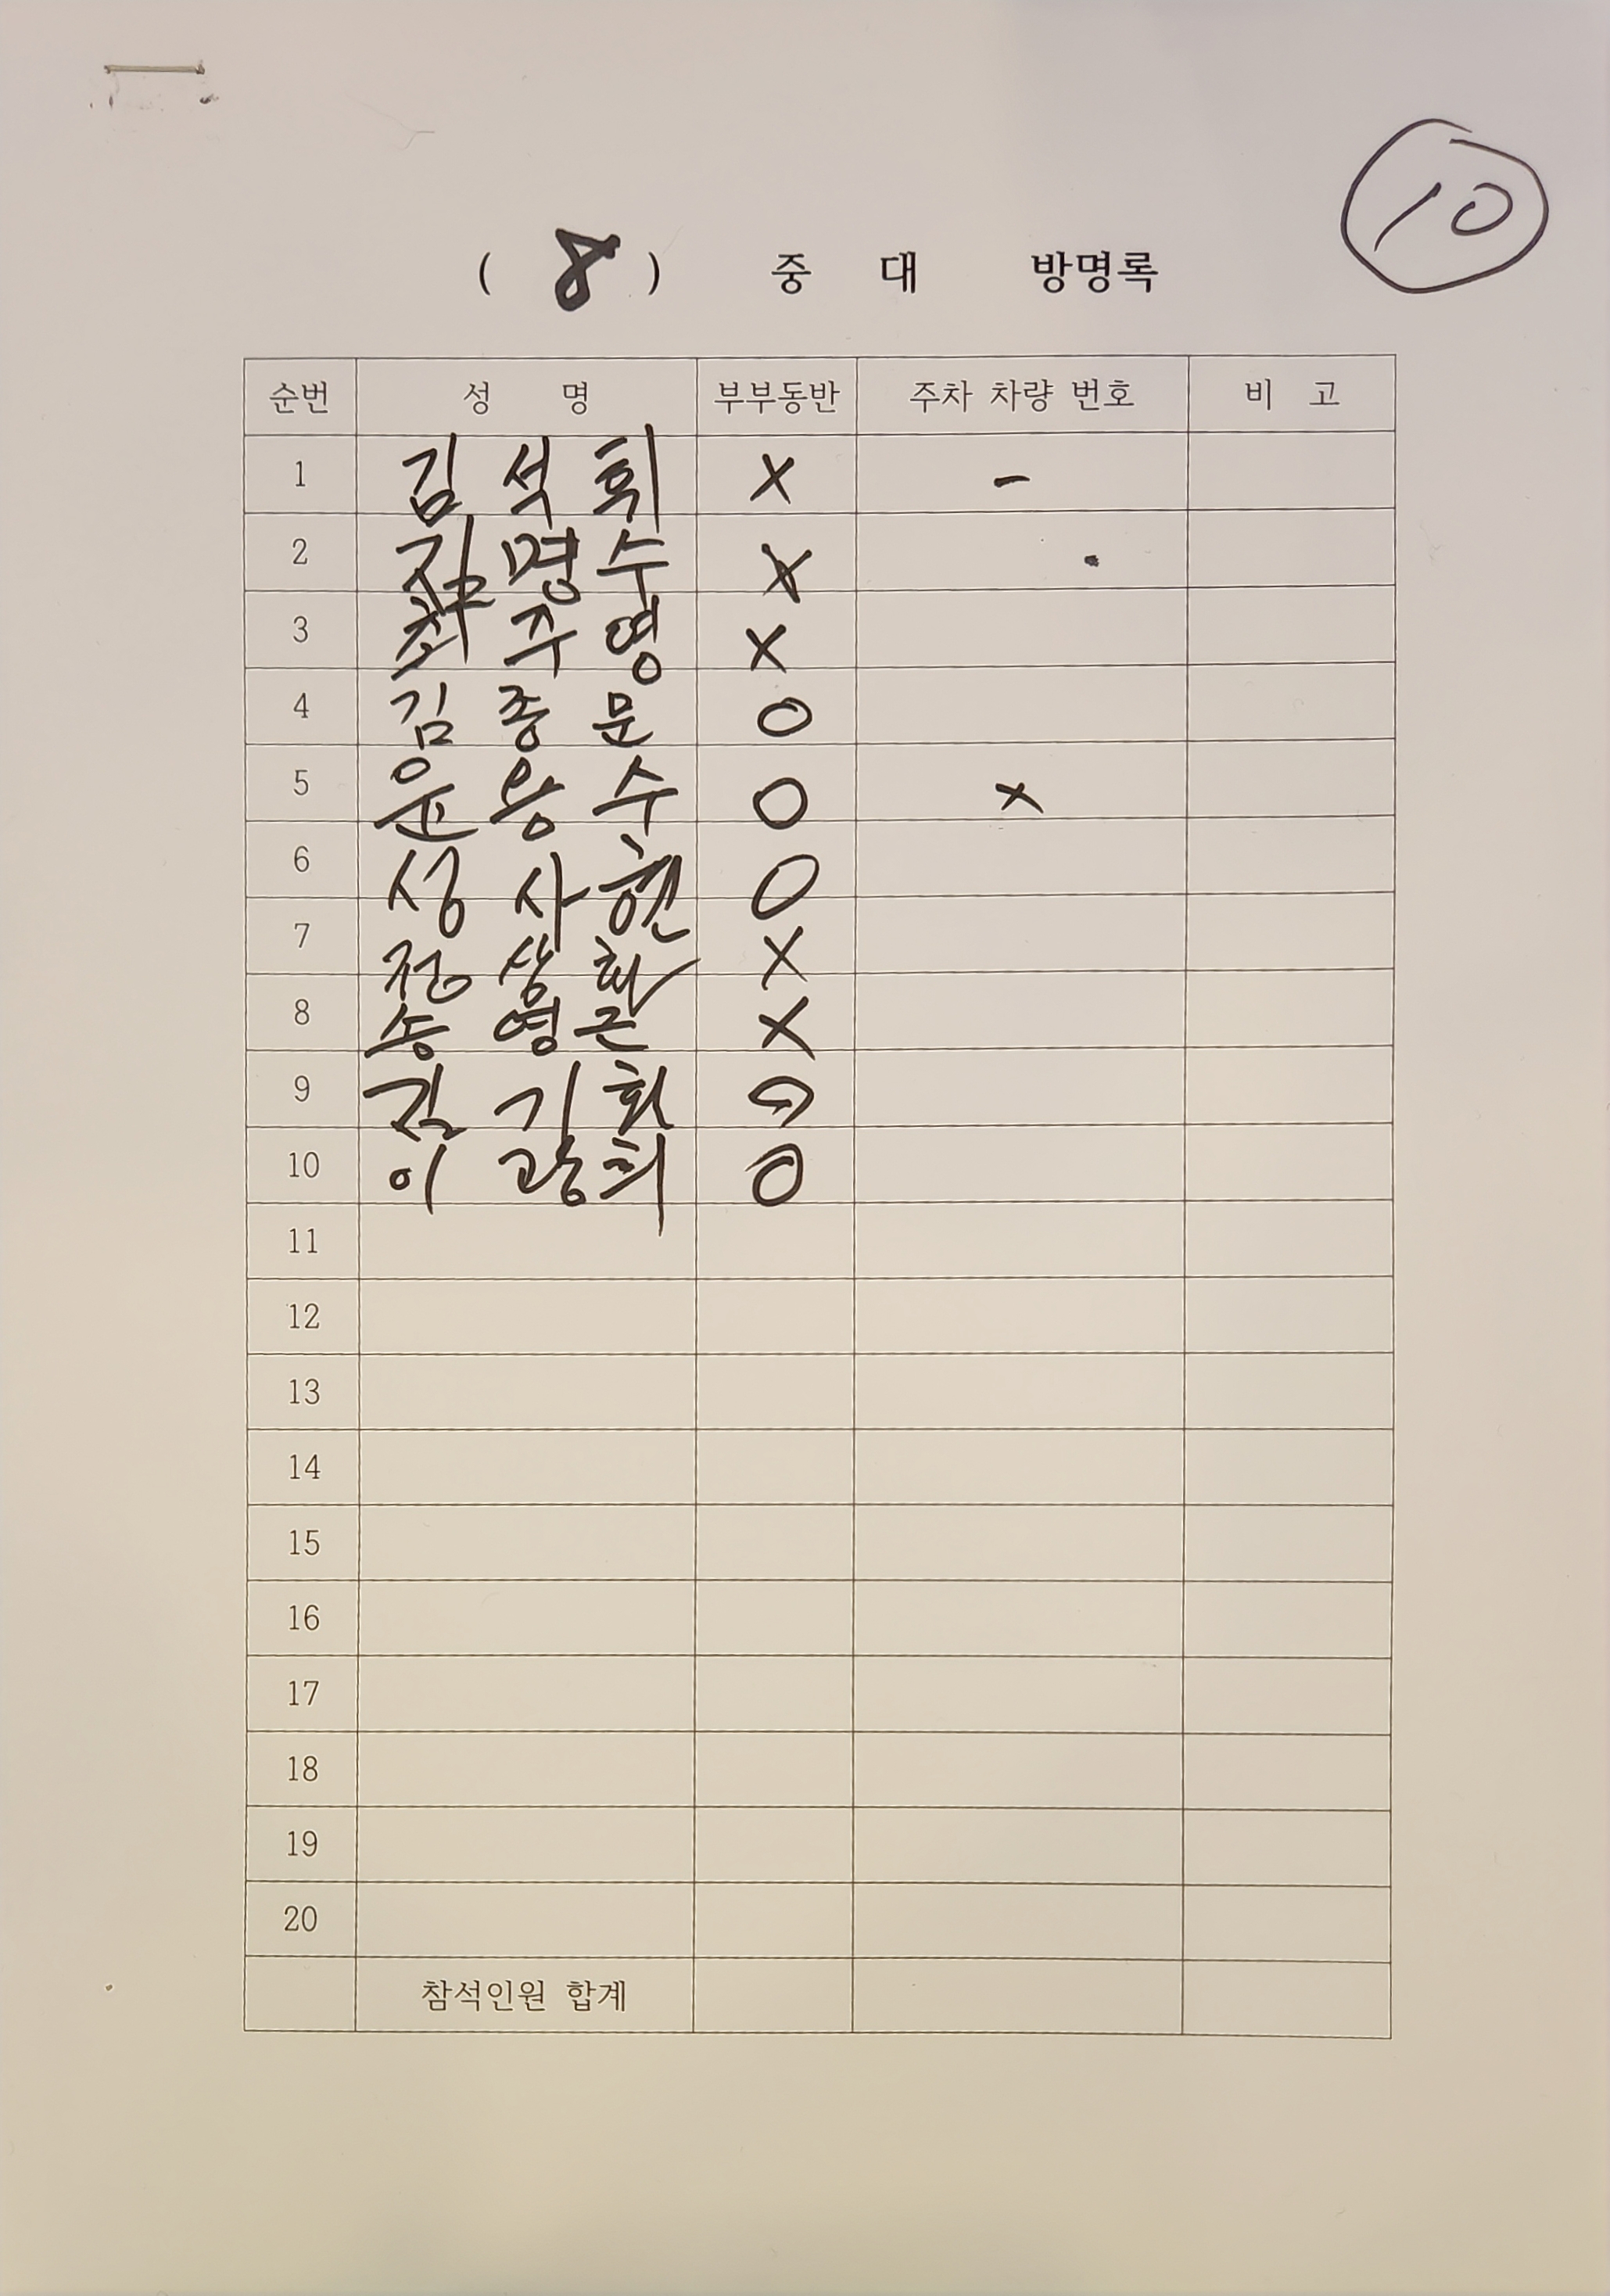 10
( 8 ) 중 대 방명록
순번 성 명 부부동반 주차 차량 번호 비 고
1 김 석 휘 X -
2 명 수 X
3 최 주 영 X
4 김 종 문 O
5 윤 왕 수 O X
6 성 사 현 O
7 정 상 X
8 송 영 근 X
9 김 기 O
10 이 광 희 O
11
12
13
14
15
16
17
18
19
20
참석인원 합계